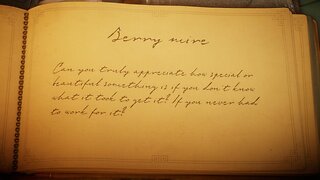 Berry mire
Can you truly appreciate how special or
beautiful something is if you don't know
what it took to get it? If you never had
to work for it?